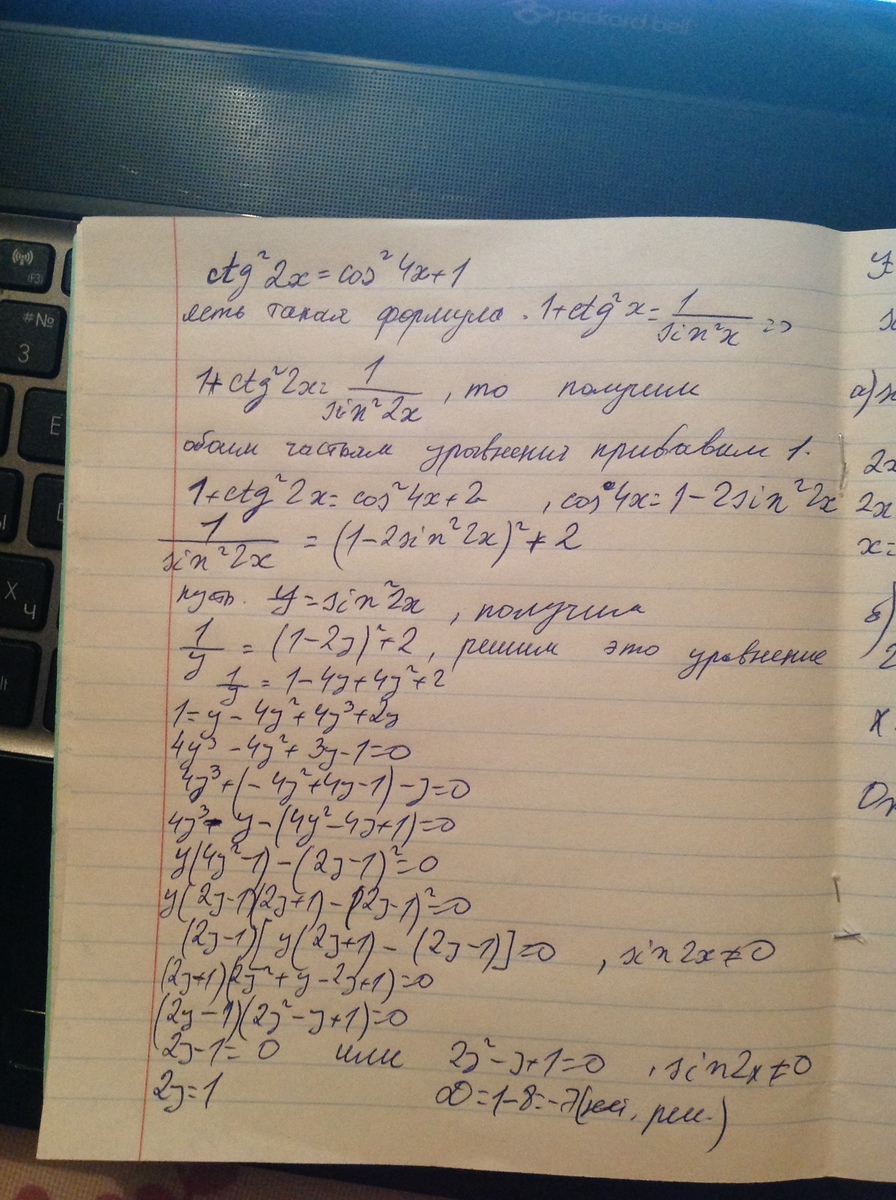 packard bell
(F3)
#№
3
Ё
Х
Ч
ctg²2x = cos²4x+1
есть такая формула. 1+ctg²x = 1/sin²x =>
1+ctg²2x = 1/sin²2x, то получим
обоим частьям уравнения прибавим 1.
1+ctg²2x = cos²4x+2 , cos4x = 1-2sin²2x
1/sin²2x = (1-2sin²2x)²+2
пусть y = sin²2x , получим
1/y = (1-2y)²+2, решим это уравнение
1/y = 1-4y+4y²+2
1=y-4y²+4y³+2y
4y³-4y²+3y-1=0
4y³+(-4y²+4y-1)-y=0
4y³-y-(4y²-4y+1)=0
y(4y²-1)-(2y-1)²=0
y(2y-1)(2y+1)-(2y-1)²=0
(2y-1)[y(2y+1)-(2y-1)]=0 , sin2x≠0
(2y+1)(2y²+y-2y+1)=0
(2y-1)(2y²-y+1)=0
2y-1=0 или 2y²-y+1=0 , sin2x≠0
2y=1 D=1-8=-7(нет. реш.)
а)
2x
2x
x=
б)
2
x